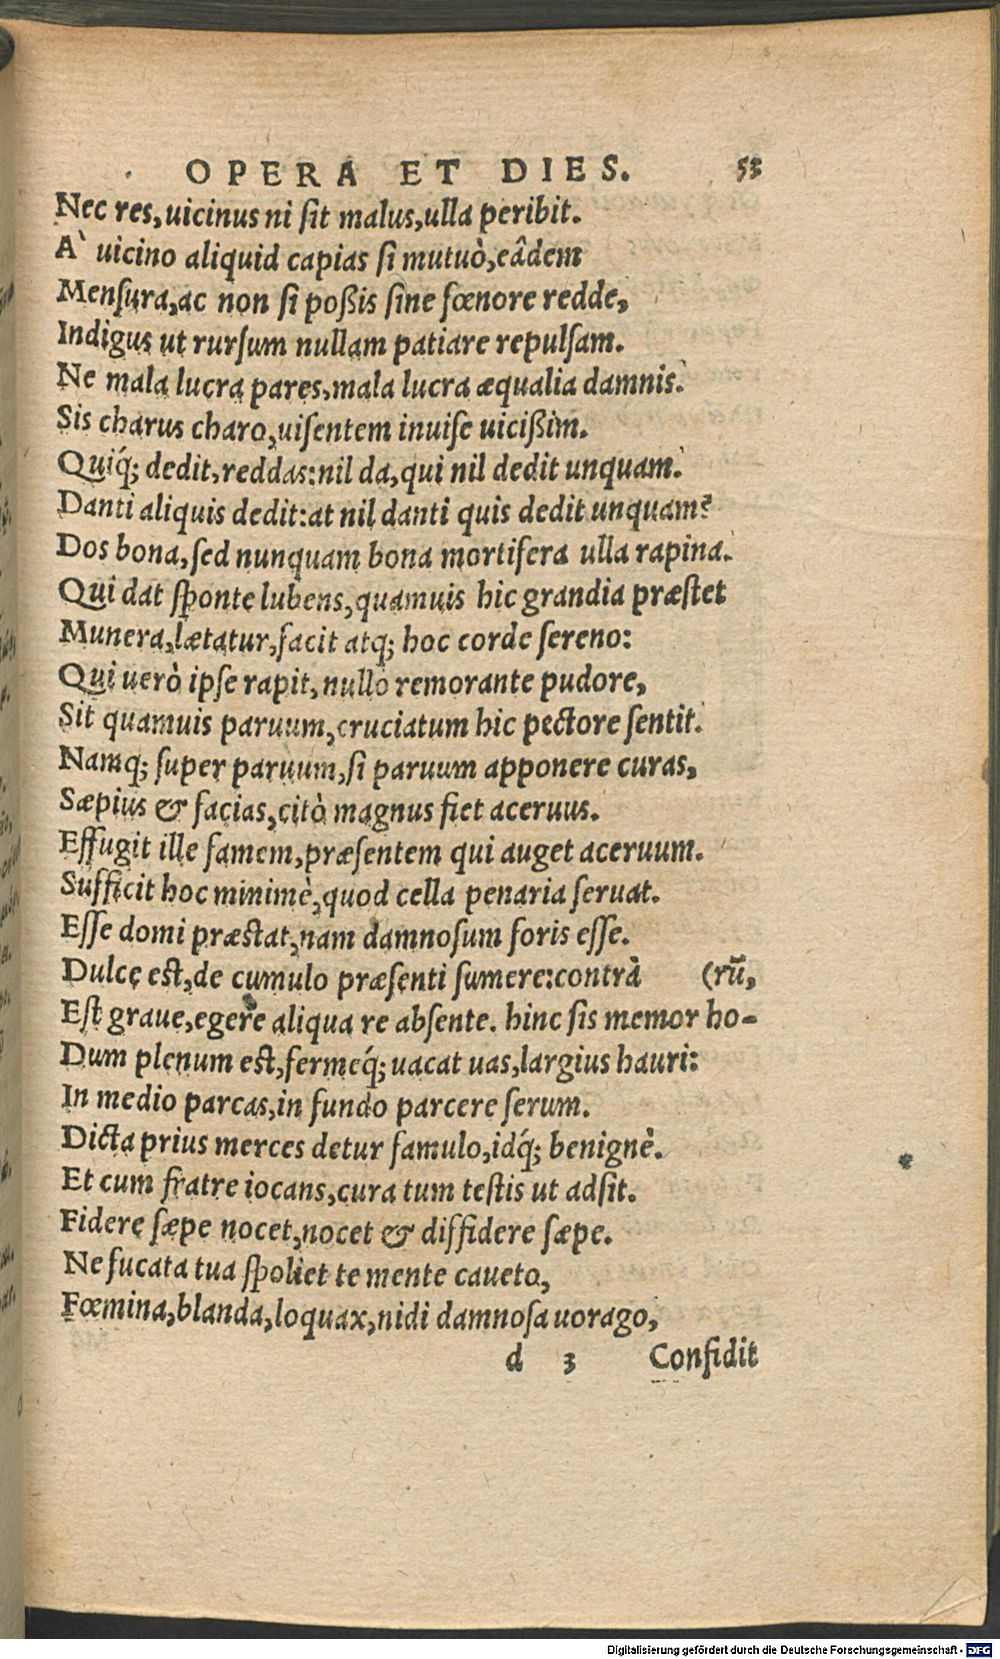 OPERA ET DIES. 53
Nec res, uicinus ni ſit malus, ulla peribit.
A` uicino aliquid capias ſi mutuò, eâdem
Menſura, ac non ſi poßis ſine fœnore redde,
Indigus ut rurſum nullam patiare repulſam.
Ne mala lucra pares, mala lucra æqualia damnis.
Sis charus charo, uiſentem inuiſe uicißim.
Quiq́; dedit, reddas: nil da, qui nil dedit unquam.
Danti aliquis dedit: at nil danti quis dedit unquam?
Dos bona, ſed nunquam bona mortifera ulla rapina.
Qui dat ſponte lubens, quamuis hic grandia præſtet
Munera, lætatur, facit atq; hoc corde ſereno:
Qui uerò ipſe rapit, nullo remorante pudore,
Sit quamuis paruum, cruciatum hic pectore ſentit.
Namq; ſuper paruum, ſi paruum apponere curas,
Sæpius & facias, citò magnus fiet aceruus.
Effugit ille famem, præſentem qui auget aceruum.
Sufficit hoc minimè, quod cella penaria ſeruat.
Eſſe domi præſtat, nam damnoſum foris eſſe.
Dulce eſt, de cumulo præſenti ſumere: contrà (rū,
Eſt graue, egere aliqua re abſente. hinc ſis memor ho-
Dum plenum eſt, fermeq́; uacat uas, largius hauri:
In medio parcas, in fundo parcere ſerum.
Dicta prius merces detur famulo, idq́; benignè.
Et cum fratre iocans, cura tum teſtis ut adſit.
Fidere ſæpe nocet, nocet & diffidere ſæpe.
Ne fucata tua ſpoliet te mente caueto,
Fœmina, blanda, loquax, nidi damnoſa uorago,
d 3 Confidit
Digitalisierung gefördert durch die Deutsche Forschungsgemeinschaft - DFG